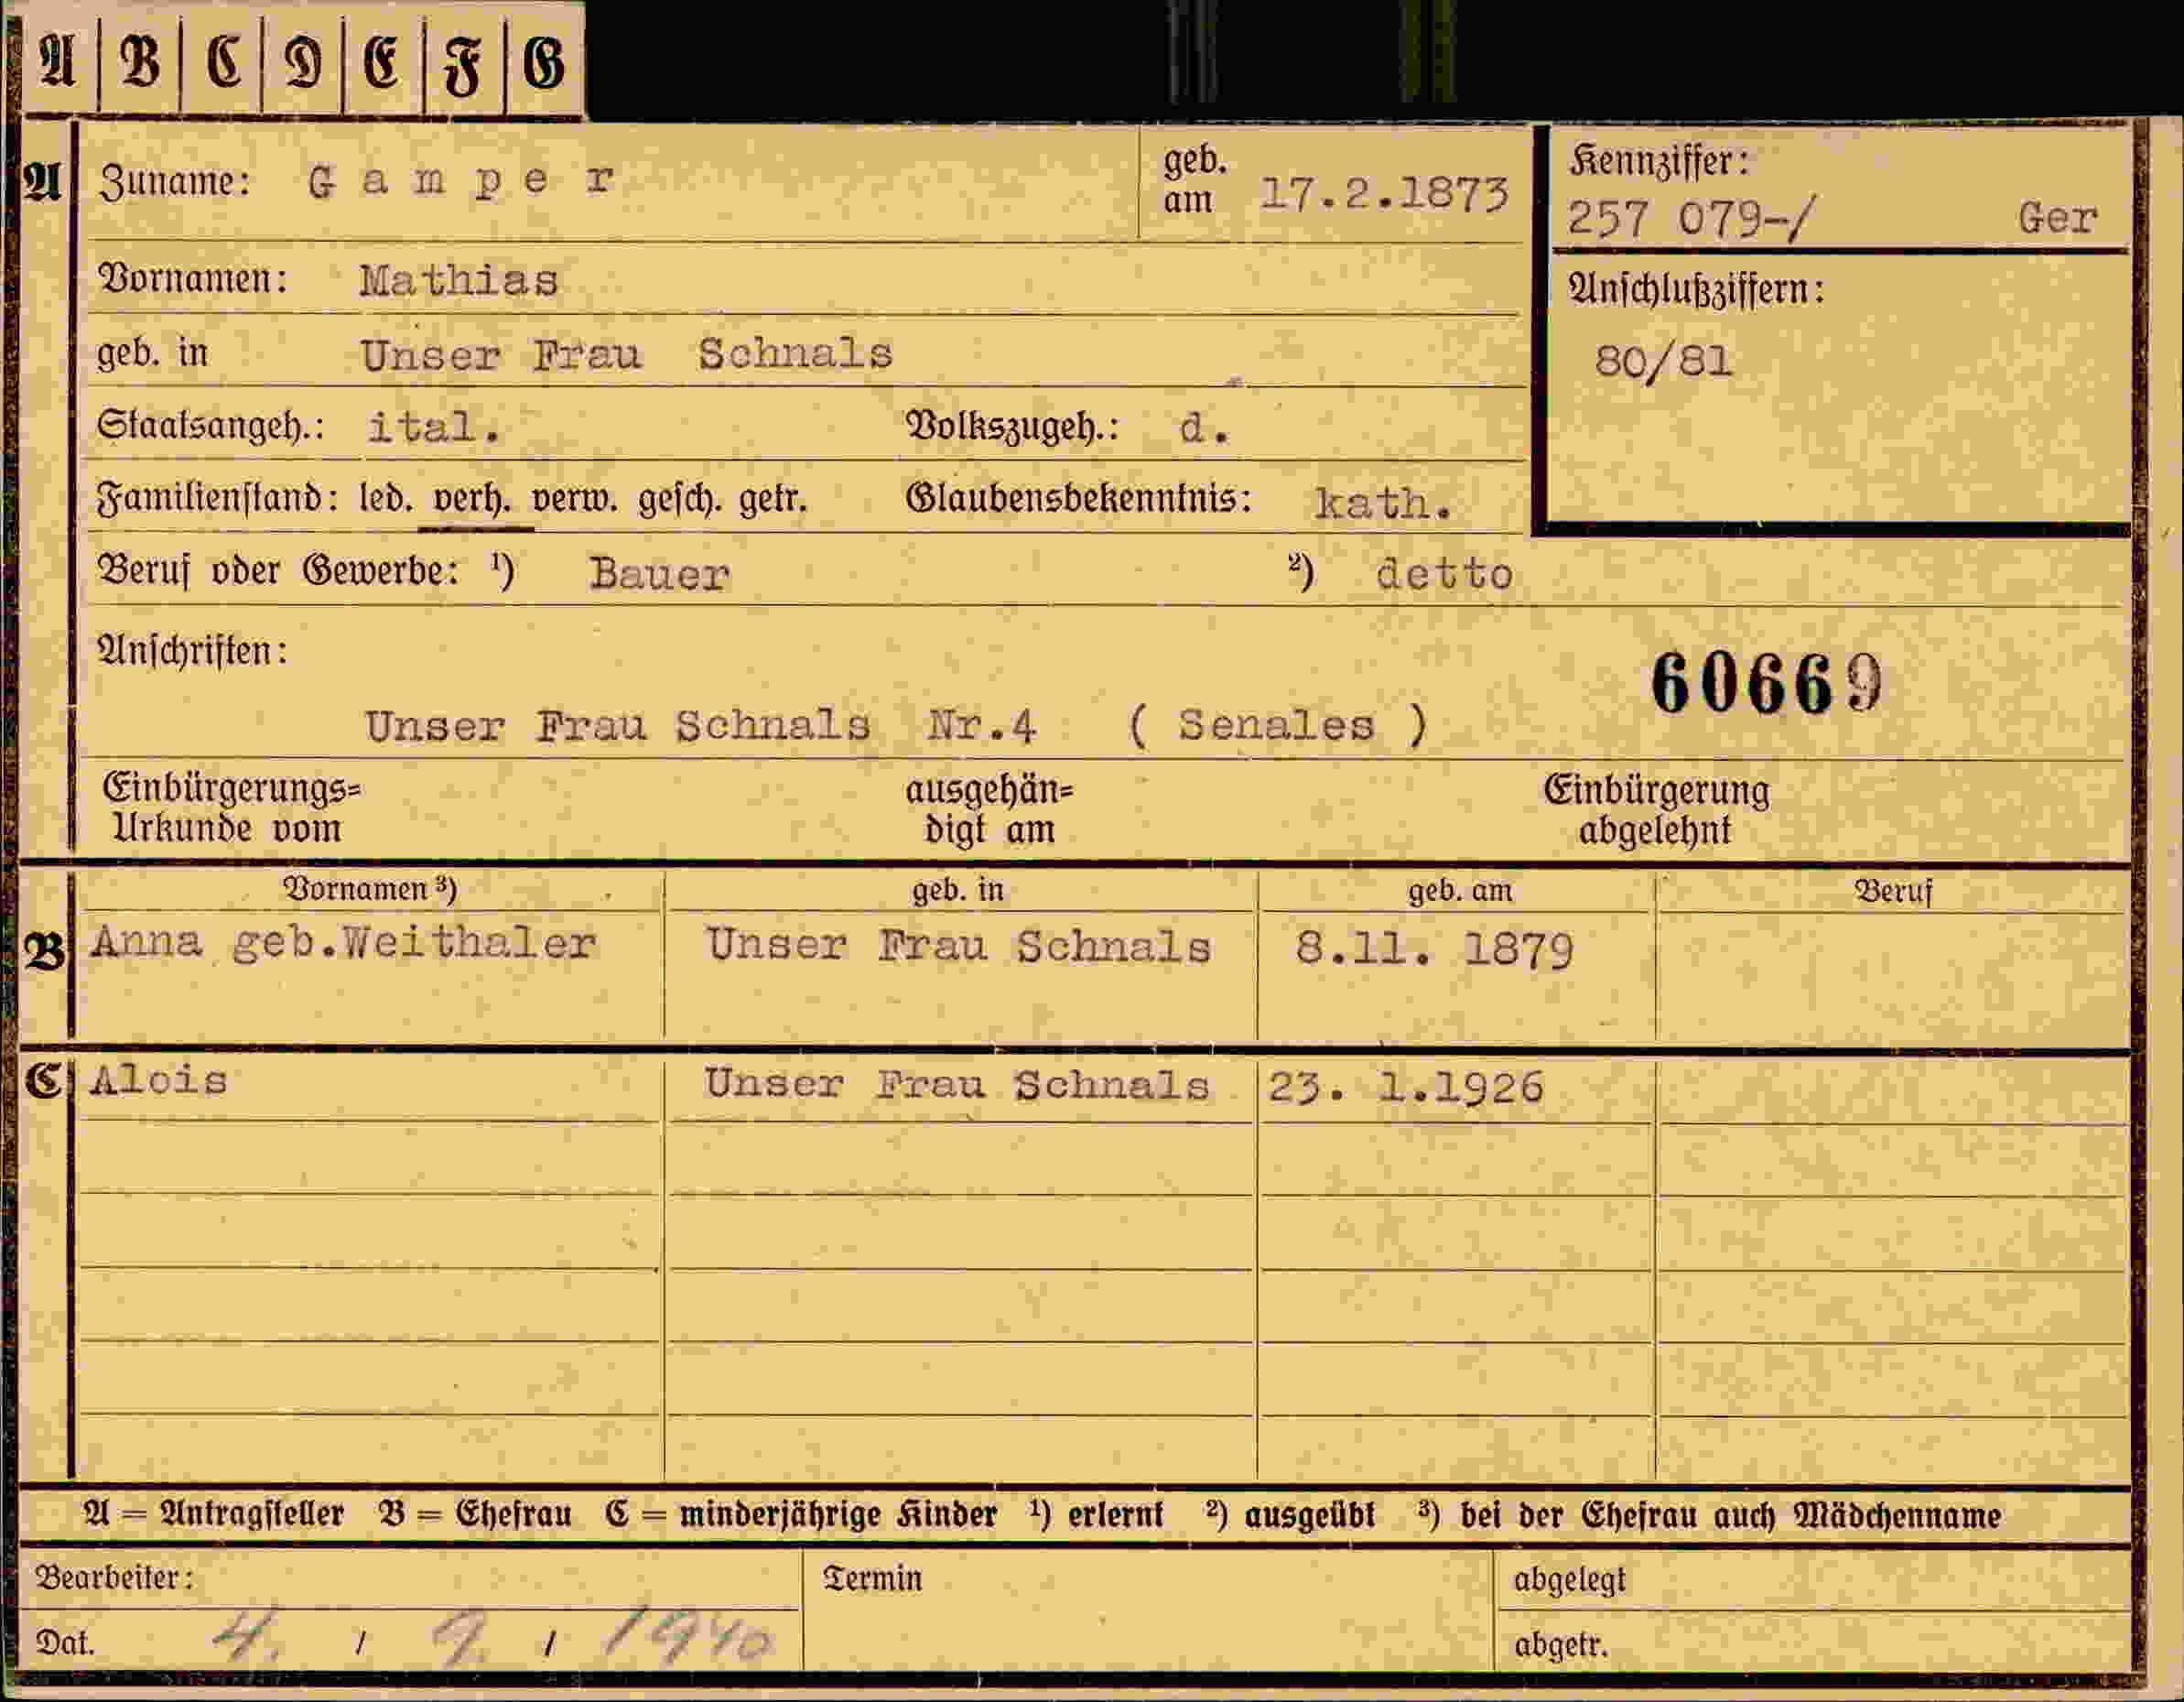 A B C D E F G
A Zuname: Gamper geb. am 17.2.1873
Kennziffer:
257 079-/ Ger
Vornamen: Mathias
Anschlußziffern:
80/81
geb. in Unser Frau Schnals
Staatsangeh.: ital. Volkszugeh.: d.
Familienstand: led. verh. verw. gesch. getr. Glaubensbekenntnis: kath.
Beruf oder Gewerbe: ¹) Bauer ²) detto
Anschriften:
60669
Unser Frau Schnals Nr.4 ( Senales )
Einbürgerungs= ausgehän= Einbürgerung
Urkunde vom digt am abgelehnt
Vornamen ³) geb. in geb. am Beruf
B Anna geb.Weithaler Unser Frau Schnals 8.11. 1879
C Alois Unser Frau Schnals 23. 1.1926
A = Antragsteller B = Ehefrau C = minderjährige Kinder ¹) erlernt ²) ausgeübt ³) bei der Ehefrau auch Mädchenname
Bearbeiter: Termin abgelegt
Dat. 4. / 9. / 1940 abgetr.